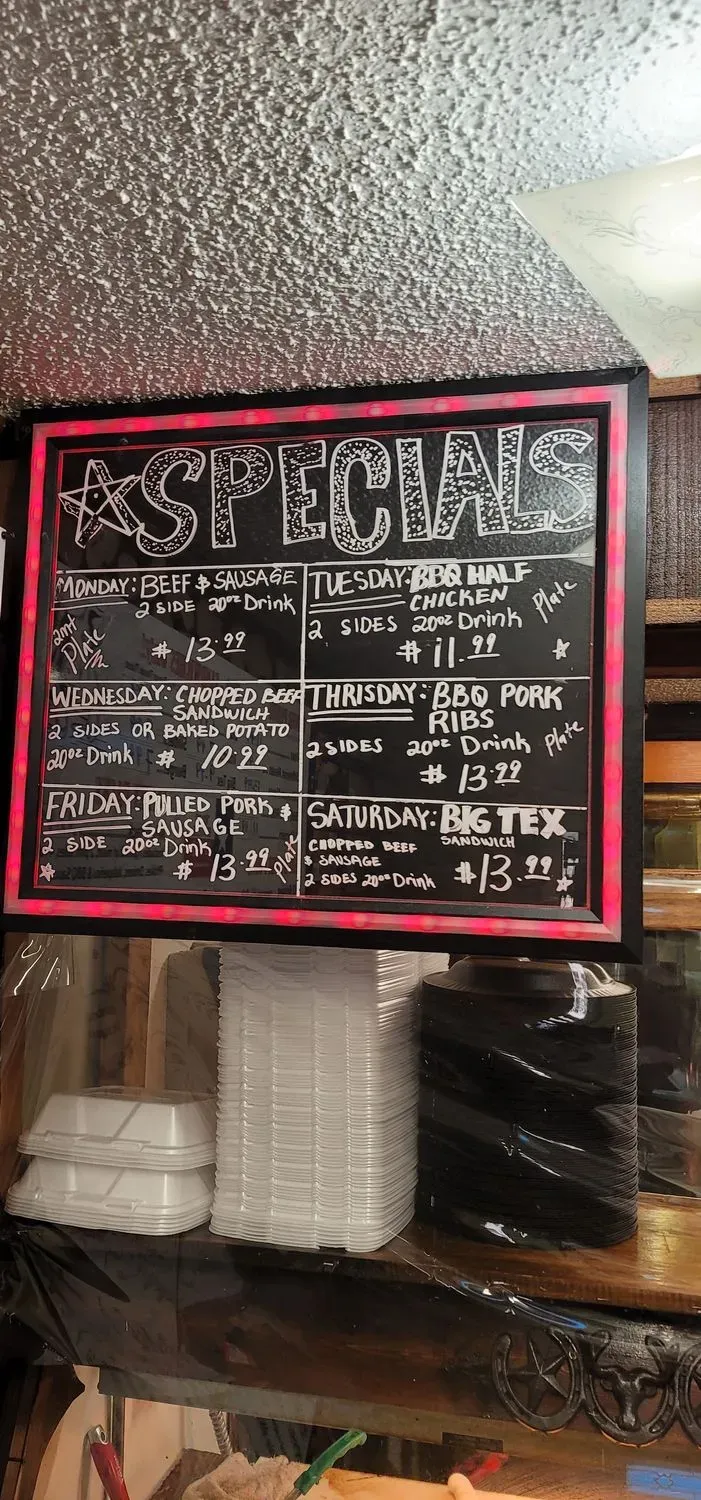 SPECIALS
MONDAY: BEEF $ SAUSAGE
2 SIDE 20oz Drink
2mt Plate
$ 13.99
TUESDAY: BBQ HALF
CHICKEN
Plate
2 SIDES 20oz Drink
$ 11.99
WEDNESDAY: CHOPPED BEEF
SANDWICH
2 SIDES OR BAKED POTATO
20oz Drink $ 10.99
THRISDAY: BBQ PORK
RIBS
2 SIDES 20oz Drink Plate
$ 13.99
FRIDAY: PULLED PORK $
SAUSAGE
2 SIDE 20oz Drink
$ 13.99 Plate
SATURDAY: BIG TEX
SANDWICH
CHOPPED BEEF
$ SAUSAGE
2 SIDES 20oz Drink $13.99